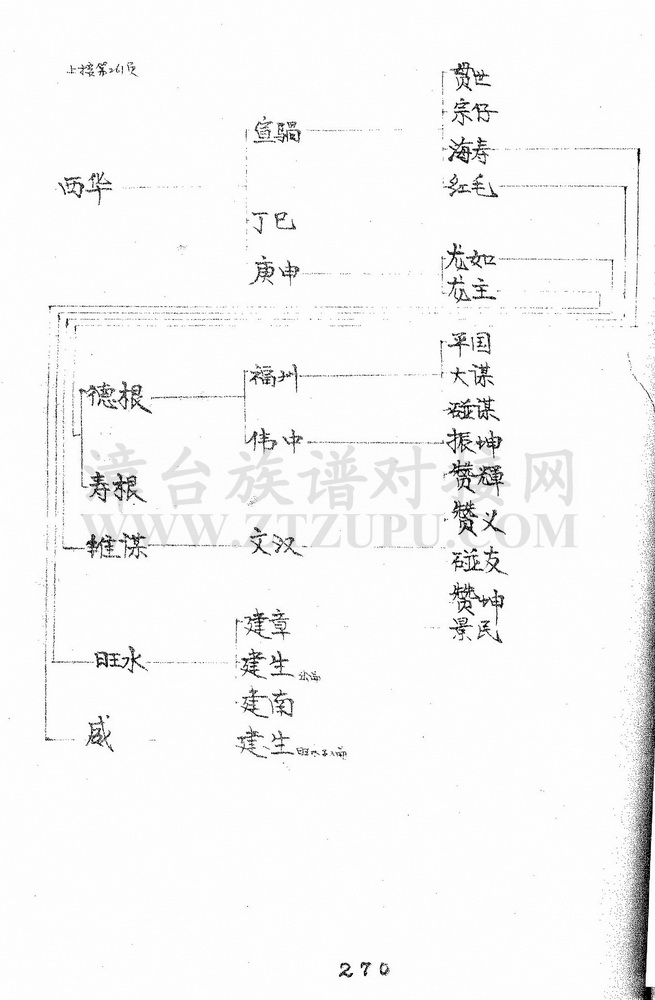 上接第261页
贯世
宗仔
宣騧
海寿
西华
红毛
丁巳
尤如
庚申
龙主
平国
福圳
大谋
德根
碰谋
伟中
振坤
赞輝
寿根
漳台族谱对接网
赞义
WWW.ZTZUPU.COM
文汉
碰友
赞坤
建章
景民
旺水
建生
建南
威
建生
270